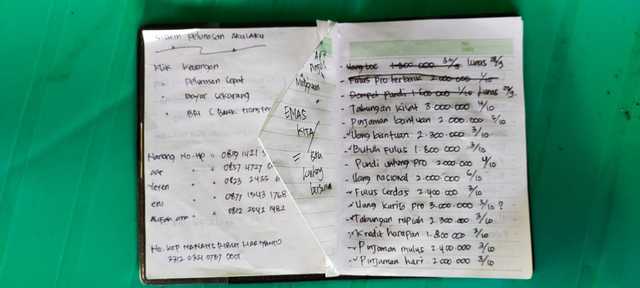 Sistem Pelunasan Akulaku
Klik Keuangan
" Pelunasan Cepat
" Bayar Sekarang
" BRI ( Bank Transfer
Nanang No. Hp " 0819 1421
" " 0857 4727
Yeren " " 0823 2455
eni " " 0877 1543 1768
" " 0812 2541 1482
No. KTP
EMAS
KITA
=
Uang
1.800.000 Lunas
Fulus Pro terbaik 2.000.000 1/10
Dompet Pundi 1.600.000 1/10 Lunas
- Tabungan Kilat 3.000.000 4/10
- Pinjaman bantuan 2.000.000 3/10
- Uang bantuan 2.300.000 3/10
- Butuh Fulus 1.800.000 3/10
- Pundi untung pro 2.000.000 4/10
- Uang nasional 2.000.000 6/10
- Fulus Cerdas 2.400.000 3/10
- Uang kurijo pro 3.000.000 3/10 ?
- Tabungan rupiah 2.300.000 3/10
- Kredit harapan 1.800.000 3/10
- Pinjaman mulus 2.400.000 3/10
- Pinjaman hari 2.000.000 3/10